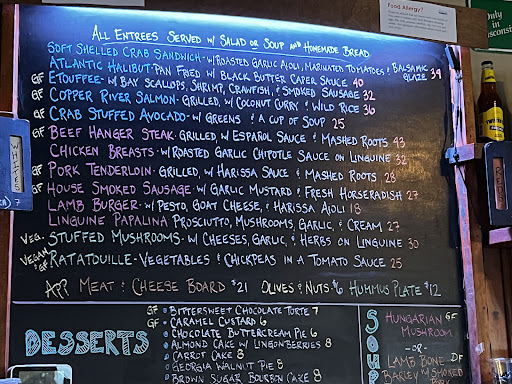 Food Allergy?
Only
in
Wisconsin
ALL ENTREES SERVED W/ SALAD OR SOUP AND HOMEMADE BREAD
SOFT SHELLED CRAB SANDWICH - W/ ROASTED GARLIC AIOLI, MARINATED TOMATOES & BALSAMIC GLAZE 34
ATLANTIC HALIBUT - PAN FRIED W/ BLACK BUTTER CAPER SAUCE 40
GF ETOUFFEE - W/ BAY SCALLOPS, SHRIMP, CRAWFISH, & SMOKED SAUSAGE 32
GF COPPER RIVER SALMON - GRILLED, W/ COCONUT CURRY & WILD RICE 36
GF CRAB STUFFED AVOCADO - W/ GREENS & A CUP OF SOUP 25
GF BEEF HANGER STEAK - GRILLED W/ ESPAÑOL SAUCE & MASHED ROOTS 43
CHICKEN BREASTS - W/ ROASTED GARLIC CHIPOTLE SAUCE ON LINGUINE 32
GF PORK TENDERLOIN - GRILLED, W/ HARISSA SAUCE & MASHED ROOTS 28
GF HOUSE SMOKED SAUSAGE - W/ GARLIC MUSTARD & FRESH HORSERADISH 27
LAMB BURGER - W/ PESTO, GOAT CHEESE, & HARISSA AIOLI 18
LINGUINE PAPALINA PROSCIUTTO, MUSHROOMS, GARLIC, & CREAM 27
VEG. STUFFED MUSHROOMS - W/ CHEESES, GARLIC, & HERBS ON LINGUINE 30
VEGAN & GF RATATOUILLE - VEGETABLES & CHICKPEAS IN A TOMATO SAUCE 25
APP MEAT & CHEESE BOARD $21 OLIVES & NUTS $6 HUMMUS PLATE $12
DESSERTS
GF BITTERSWEET CHOCOLATE TORTE 7
GF CARAMEL CUSTARD 6
CHOCOLATE BUTTERCREAM PIE 6
ALMOND CAKE W/ LINGONBERRIES 8
CARROT CAKE 8
GEORGIA WALNUT PIE 8
BROWN SUGAR BOURBON CAKE 8
SOUP
HUNGARIAN GF
MUSHROOM
-OR-
LAMB BONE DF
BARLEY W/ SMOKED
WHITES